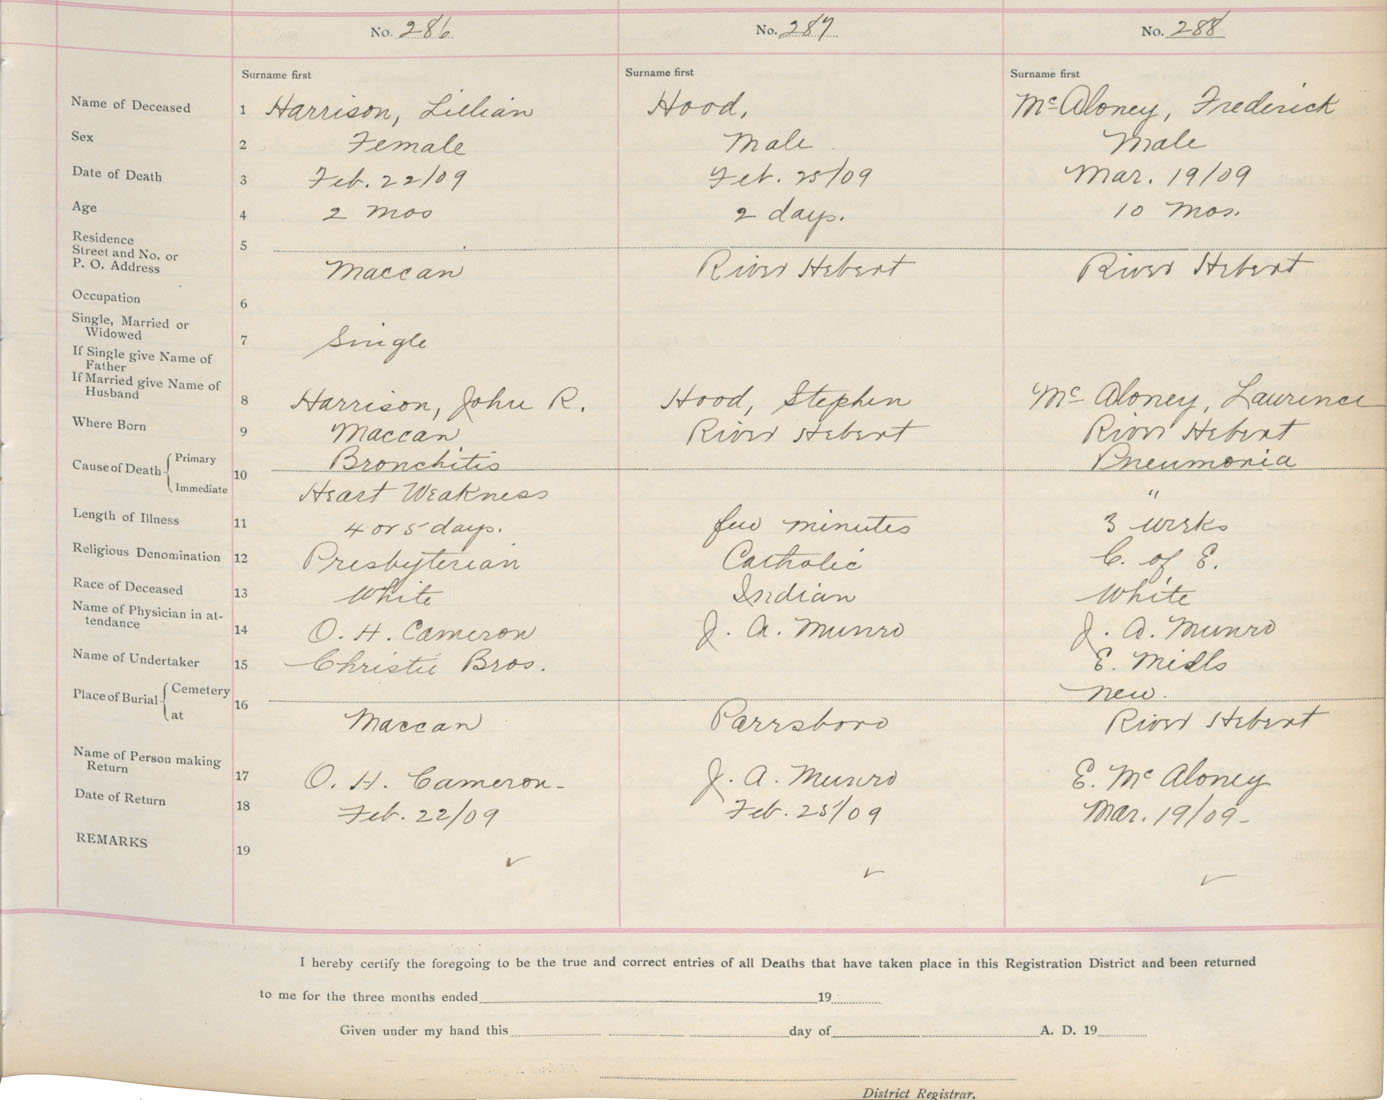 No. 286 No. 287 No. 288
Surname first Surname first Surname first
Name of Deceased 1 Harrison, Lillian Hood, McAloney, Frederick
Sex 2 Female Male Male
Date of Death 3 Feb. 22/09 Feb. 25/09 Mar. 19/09
Age 4 2 mos 2 days. 10 mos.
Residence
Street and No. or 5
P. O. Address Maccan River Hebert River Hebert
Occupation 6
Single, Married or
Widowed 7 Single
If Single give Name of
Father
If Married give Name of
Husband 8 Harrison, John R. Hood, Stephen McAloney, Laurence
Where Born 9 Maccan River Hebert River Hebert
Cause of Death { Primary 10 Bronchitis Pneumonia
Immediate Heart Weakness "
Length of Illness 11 4 or 5 days. few minutes 3 weeks
Religious Denomination 12 Presbyterian Catholic C. of E.
Race of Deceased 13 White Indian White
Name of Physician in at-
tendance 14 O. H. Cameron J. A. Munro J. A. Munro
Name of Undertaker 15 Christie Bros. E. Mills
Place of Burial { Cemetery 16 new.
at Maccan Parrsboro River Hebert
Name of Person making
Return 17 O. H. Cameron- J. A. Munro E. McAloney
Date of Return 18 Feb. 22/09 Feb. 25/09 Mar. 19/09-
REMARKS 19
I hereby certify the foregoing to be the true and correct entries of all Deaths that have taken place in this Registration District and been returned
to me for the three months ended 19
Given under my hand this day of A. D. 19
District Registrar.